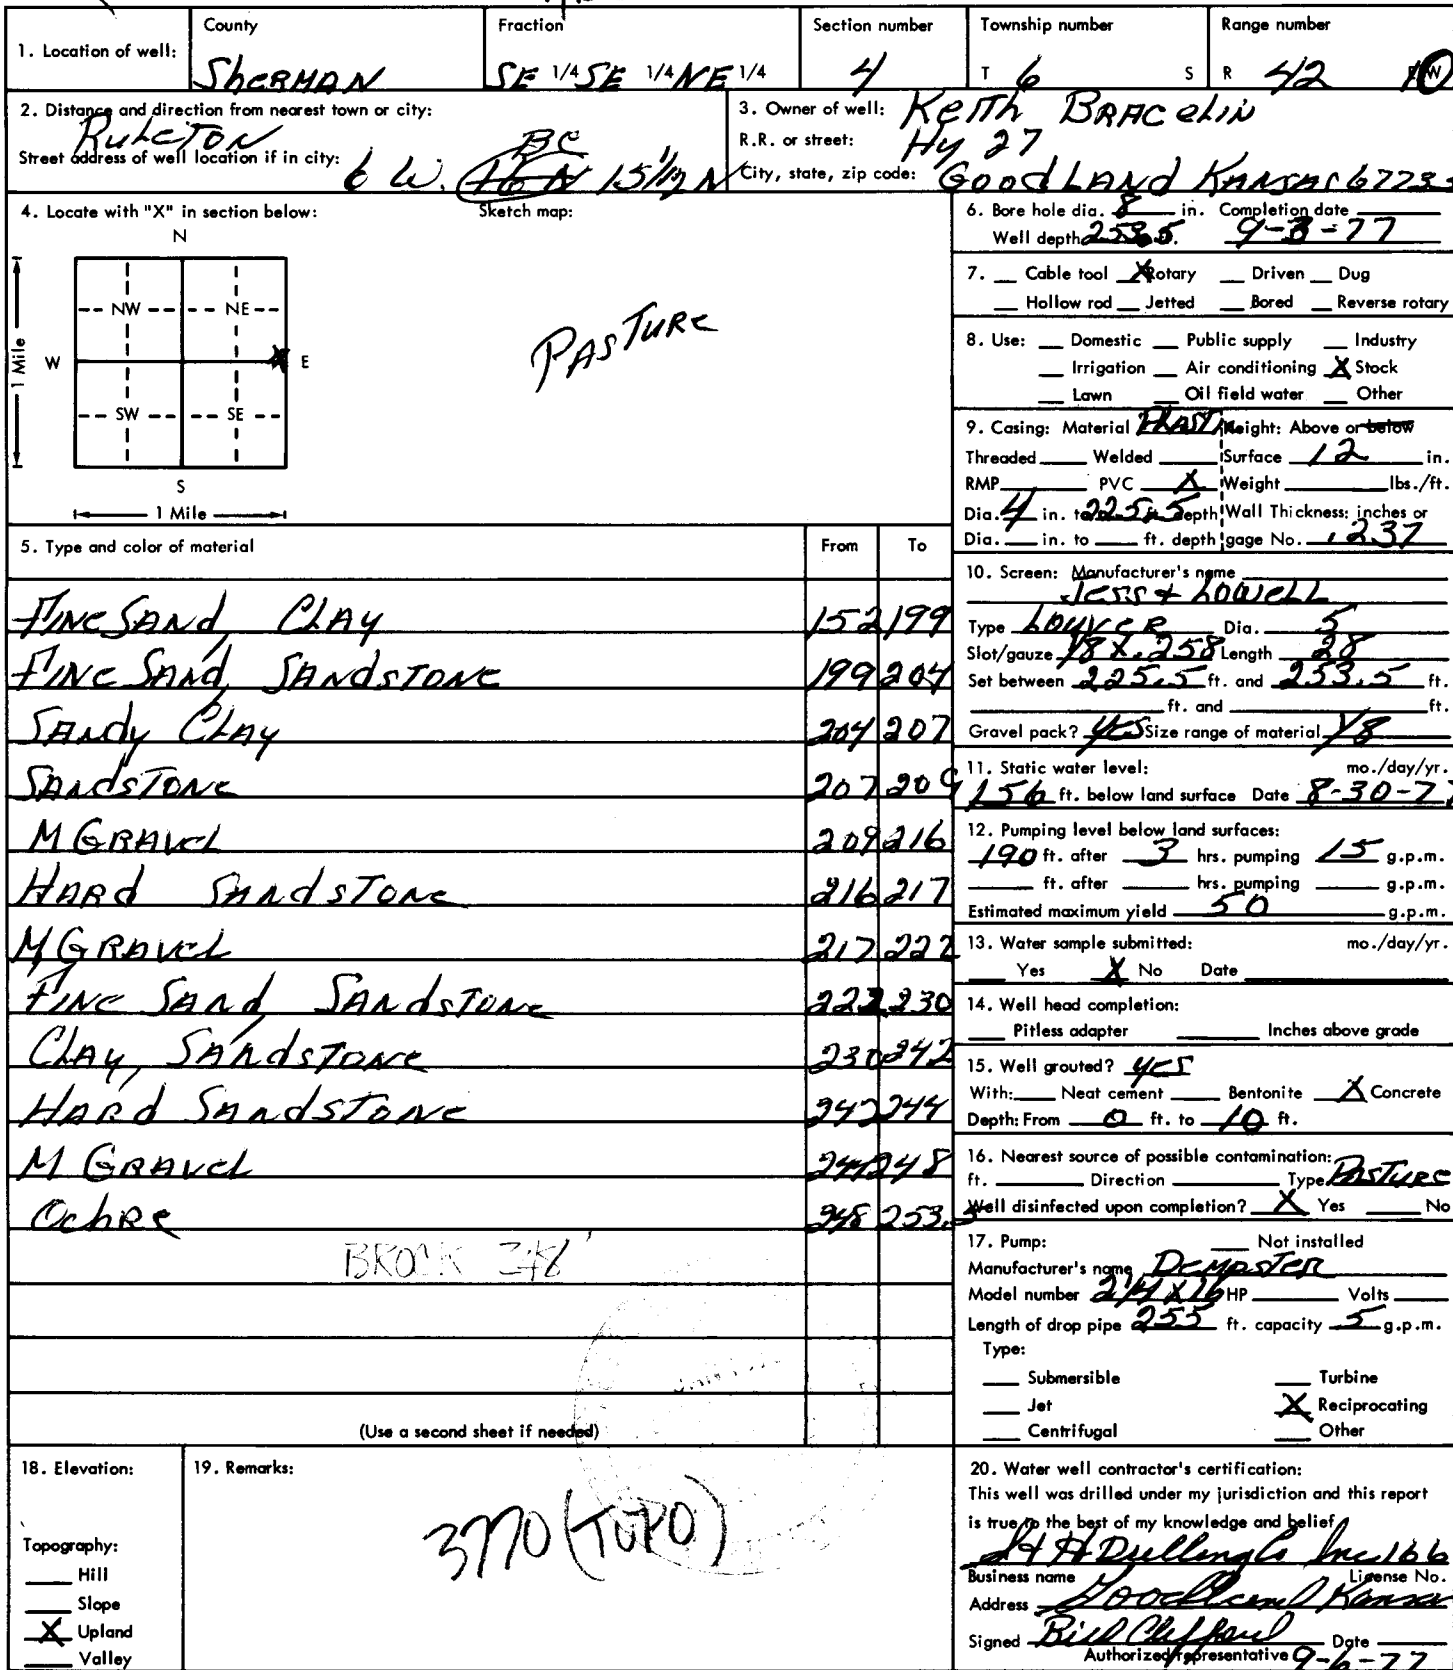 1. Location of well:
County
Sherman
Fraction
SE 1/4 SE 1/4 NE 1/4
Section number
4
Township number
T 6 S
Range number
R 42 W
2. Distance and direction from nearest town or city:
Ruleton
Street address of well location if in city:
BC
6 W. 16 N 15 1/2 N
3. Owner of well: Keith Bracelin
R.R. or street: Hy 27
City, state, zip code: Goodland Kansas
4. Locate with "X" in section below:
Sketch map:
N
NW NE
W X E
SW SE
S
1 Mile
1 Mile
Pasture
5. Type and color of material From To
Fine Sand, Clay 152 199
Fine Sand, Sandstone 199 204
Sandy Clay 204 207
Sandstone 207 209
M Gravel 209 216
Hard Sandstone 216 217
M Gravel 217 222
Fine Sand, Sandstone 222 230
Clay, Sandstone 230 242
Hard Sandstone 242 244
M Gravel 244 248
Ochre 248 253.5
BROCK 248'
(Use a second sheet if needed)
6. Bore hole dia. 8 in. Completion date
Well depth 253.5 9-3-77
7. __ Cable tool X Rotary __ Driven __ Dug
__ Hollow rod __ Jetted __ Bored __ Reverse rotary
8. Use: __ Domestic __ Public supply __ Industry
__ Irrigation __ Air conditioning X Stock
__ Lawn __ Oil field water __ Other
9. Casing: Material Plastic Height: Above or below
Threaded __ Welded __ Surface 12 in.
RMP __ PVC X Weight __ lbs./ft.
Dia. 4 in. to 225.5 depth Wall Thickness: inches or
Dia. __ in. to __ ft. depth gage No. .237
10. Screen: Manufacturer's name
Jess & Lowell
Type Louver Dia. 5
Slot/gauze 1/8 X .258 Length 28
Set between 225.5 ft. and 253.5 ft.
__ ft. and __ ft.
Gravel pack? yes Size range of material 1/8
11. Static water level: mo./day/yr.
156 ft. below land surface Date 8-30-77
12. Pumping level below land surfaces:
190 ft. after 3 hrs. pumping 15 g.p.m.
__ ft. after __ hrs. pumping __ g.p.m.
Estimated maximum yield 50 g.p.m.
13. Water sample submitted: mo./day/yr.
__ Yes X No Date
14. Well head completion:
__ Pitless adapter __ Inches above grade
15. Well grouted? yes
With: __ Neat cement __ Bentonite X Concrete
Depth: From 0 ft. to 10 ft.
16. Nearest source of possible contamination:
ft. __ Direction __ Type Pasture
Well disinfected upon completion? X Yes __ No
17. Pump: __ Not installed
Manufacturer's name Dempster
Model number 2 1/4 X 16 HP __ Volts __
Length of drop pipe 255 ft. capacity 5 g.p.m.
Type:
__ Submersible __ Turbine
__ Jet X Reciprocating
__ Centrifugal __ Other
18. Elevation:
Topography:
__ Hill
__ Slope
X Upland
__ Valley
19. Remarks:
3770 (TOPO)
20. Water well contractor's certification:
This well was drilled under my jurisdiction and this report
is true to the best of my knowledge and belief
H H Drilling Co Inc. 166
Business name License No.
Address Goodland Kansas
Signed Bill Clifford Date
Authorized representative 9-6-77